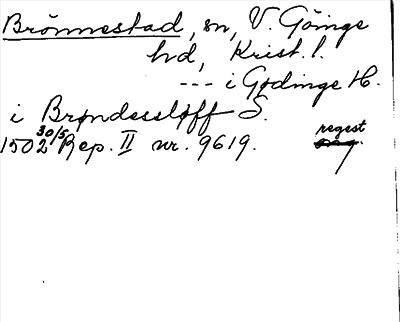 Brönnestad, sn, V. Göinge
hd, Krist. l.
--- i Gødinge H.
i Brøndessløff S.
1502 30/5 Rep. II nr. 9619. regest